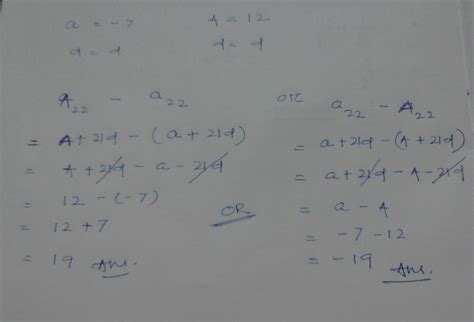 a = -7    A = 12
d = d    d = d
A₂₂ - a₂₂
= A + 21d - (a + 21d)
= A + 21d - a - 21d
= 12 - (-7)
= 12 + 7
= 19 Ans.
OR
OR a₂₂ - A₂₂
= a + 21d - (A + 21d)
= a + 21d - A - 21d
= a - A
= -7 - 12
= -19 Ans.